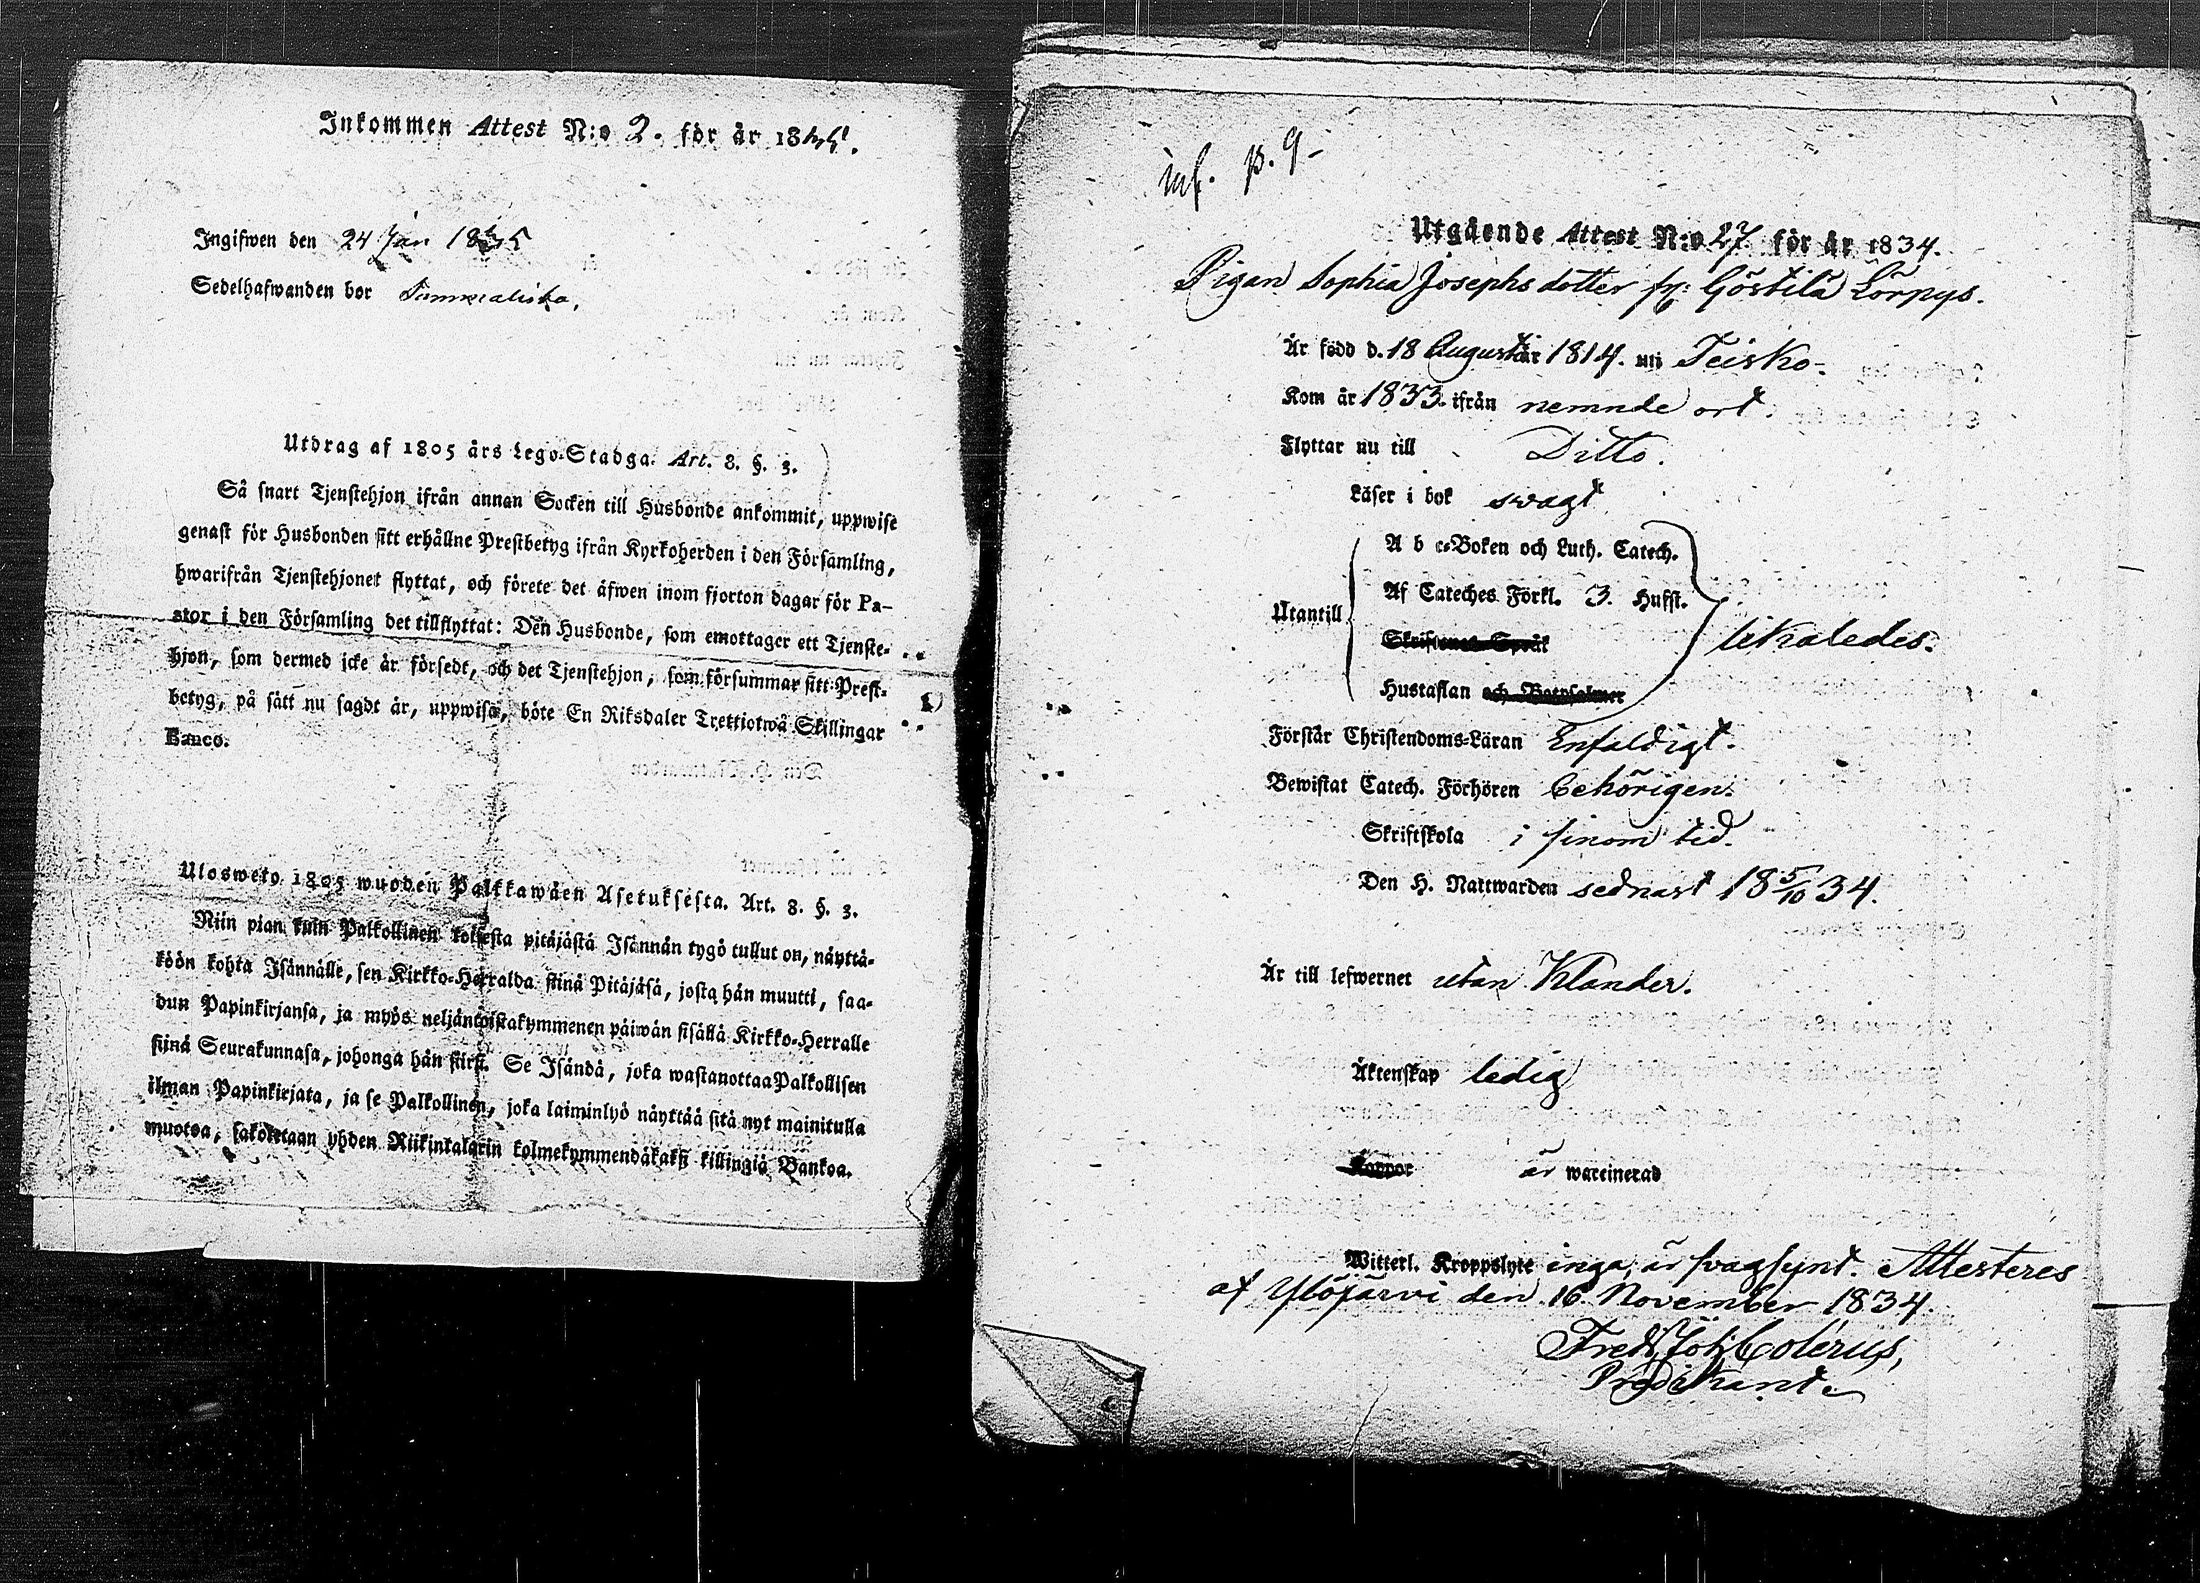 Inkommen Attest N:o 2. för år 1835.
Ingifwen den 24 Jan 1835
Sedelhafwanden bor
Utdrag af 1805 års Lego-Stadga. Art. 8. §. 3.
Så snart Tjenstehjon ifrån annan Socken till Husbonde ankommit, uppwise
genast för Husbonden sitt erhållne Prestbetyg ifrån Kyrkoherden i den Församling,
hwarifrån Tjenstehjonet flyttat, och förete det äfwen inom fjorton dagar för Pa-
stor i den Församling det tillflyttat: Den Husbonde, som emottager ett Tjenste-
hjon, som dermed icke är försedt, och det Tjenstehjon, som försummar sitt Prest-
betyg, på sätt nu sagdt är, uppwisa, böte En Riksdaler Trettiotwå Skillingar
Banco.
Ulosweto 1805 wuoden Palkkawäen Asetuksesta. Art. 8. §. 3.
Niin pian kuin Palkollinen toisesta pitäjästä Isännän tygö tullut on, näyttä-
köön kohta Isännälle, sen Kirkko-Herralda siinä Pitäjäsä, josta hän muutti, saa-
dun Papinkirjansa, ja myös neljäntoistakymmenen päiwän sisällä Kirkko-Herralle
siinä Seurakunnasa, johonga hän siirsi. Se Isändä, joka wastanottaa Palkollisen
ilman Papinkirjata, ja se Palkollinen, joka laiminlyö näyttää sitä nyt mainitulla
muotoa, sakotetaan yhden Riikintalarin kolmekymmendäkaksi killingiä Bankoa.
inf. p. 9-
Utgående Attest N:o 27 för år 1834.
Pigan Sophia Josephsdotter fr: Göstilä Lörpys.
Är född d. 18 Augusti år 1814. uti Teisko.
Kom år 1833. ifrån nemnde ort.
Flyttar nu till Ditto.
Läser i bok swagt
A b c-Boken och Luth. Catech.
Af Cateches Förkl. 3. Hufst.
Utantill
Skriftenes Språk
likaledes.
Hustaflan och Botpsalmer
Förstår Christendoms-Läran Enfaldigt.
Bewistat Catech. Förhören behörigen.
Skriftskola i sinom tid.
Den H. Nattwarden sednast 18 5/10 34.
Är till lefwernet utan Klander.
Äktenskap ledig
Koppor är waccinerad
Witterl. Kroppslyte inga, är swagsynt. Attesteres
af Ylöjärvi den 16 November 1834.
Fredr. Joh. Colerus,
Predikant.